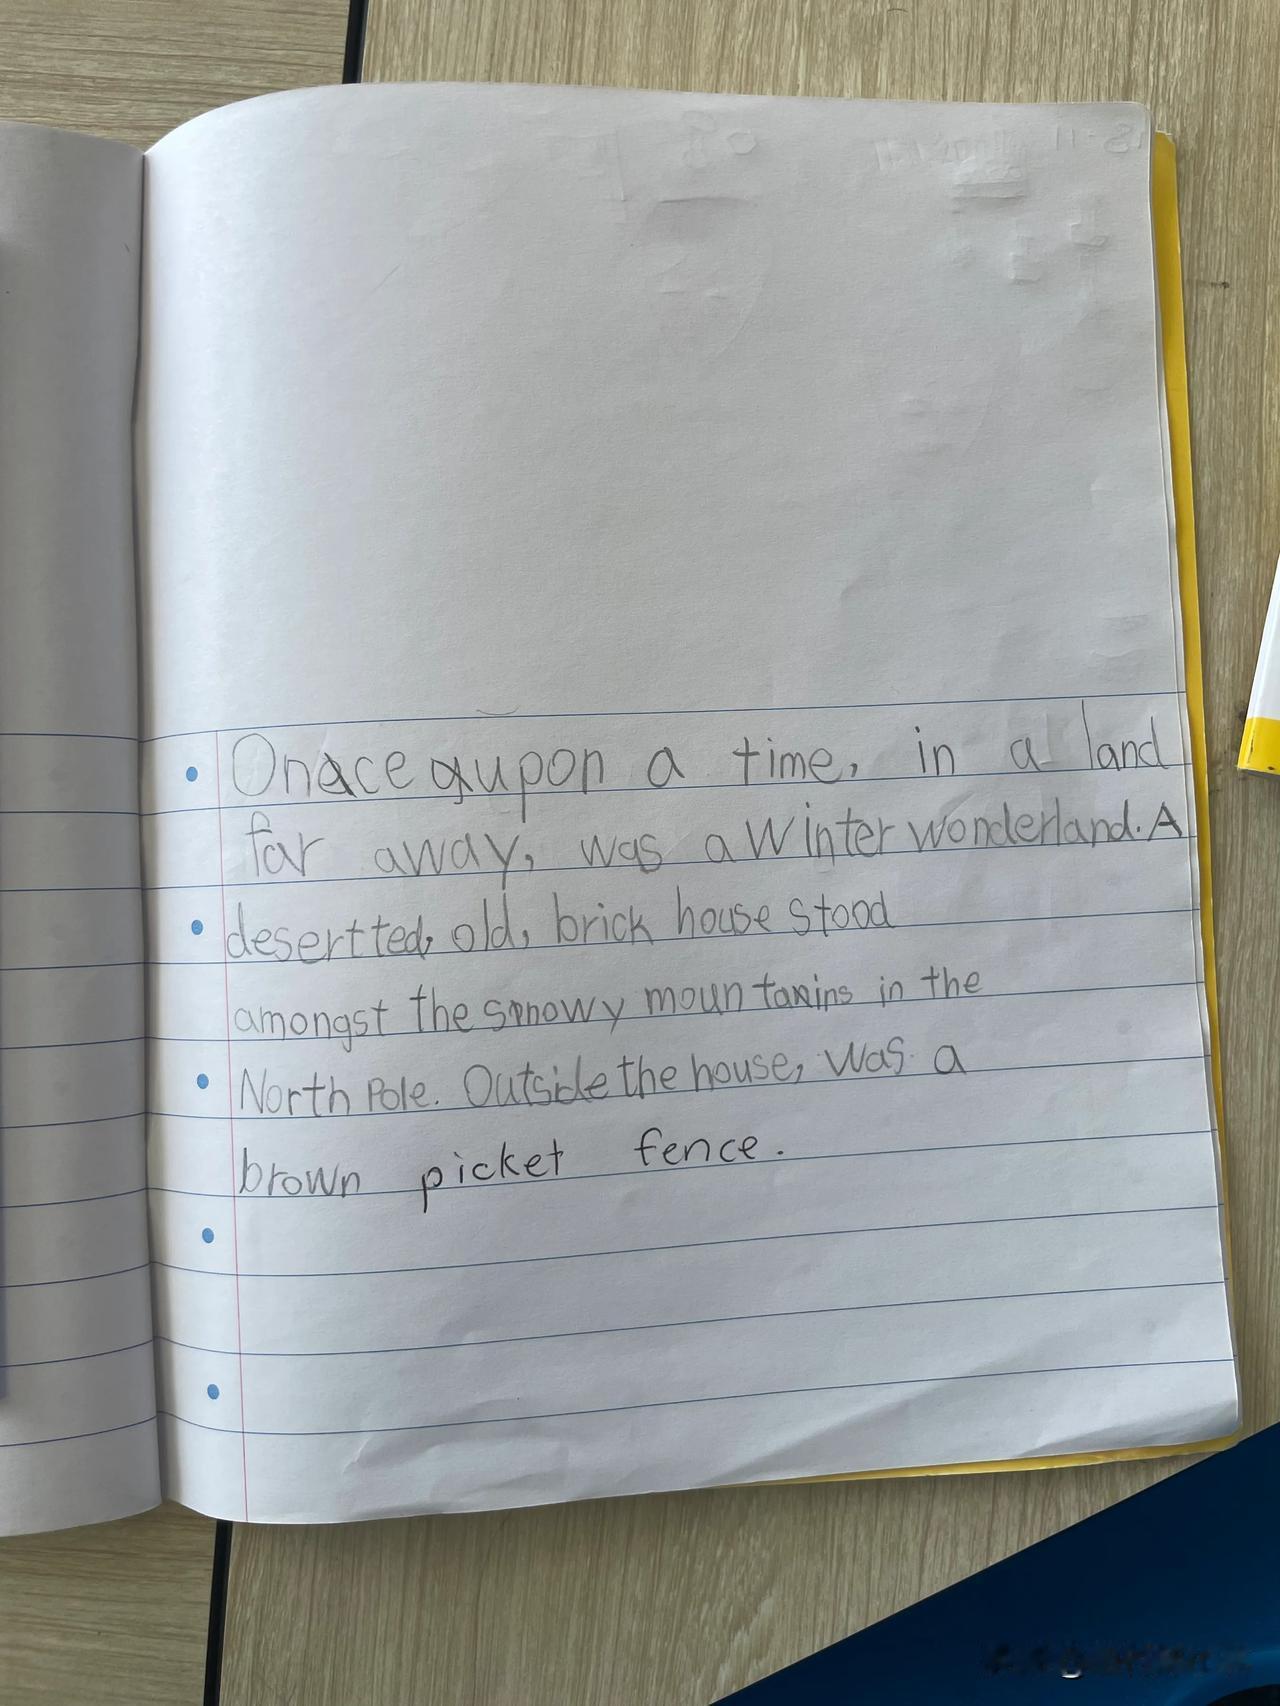 Onace qupon a time, in a land
far away, was a winter wonderland. A
desertted, old, brick house stood
amongst the snowy mountains in the
North Pole. Outside the house, was a
brown picket fence.